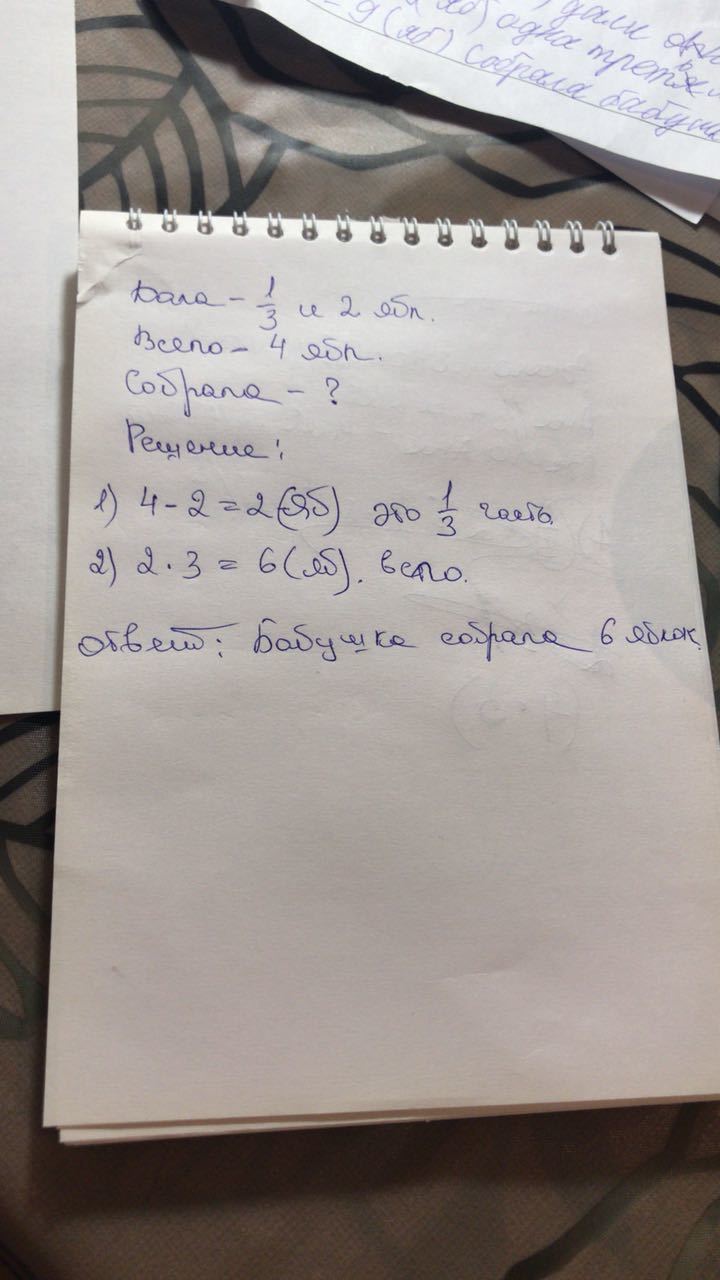 дали
одна третья
- 9 (яб) собрала бабушка
Дала - 1/3 и 2 ябл.
Всего - 4 ябл.
Собрала - ?
Решение:
1) 4 - 2 = 2 (яб) это 1/3 часть.
2) 2 · 3 = 6 (яб). всего.
Ответ: Бабушка собрала 6 яблок.